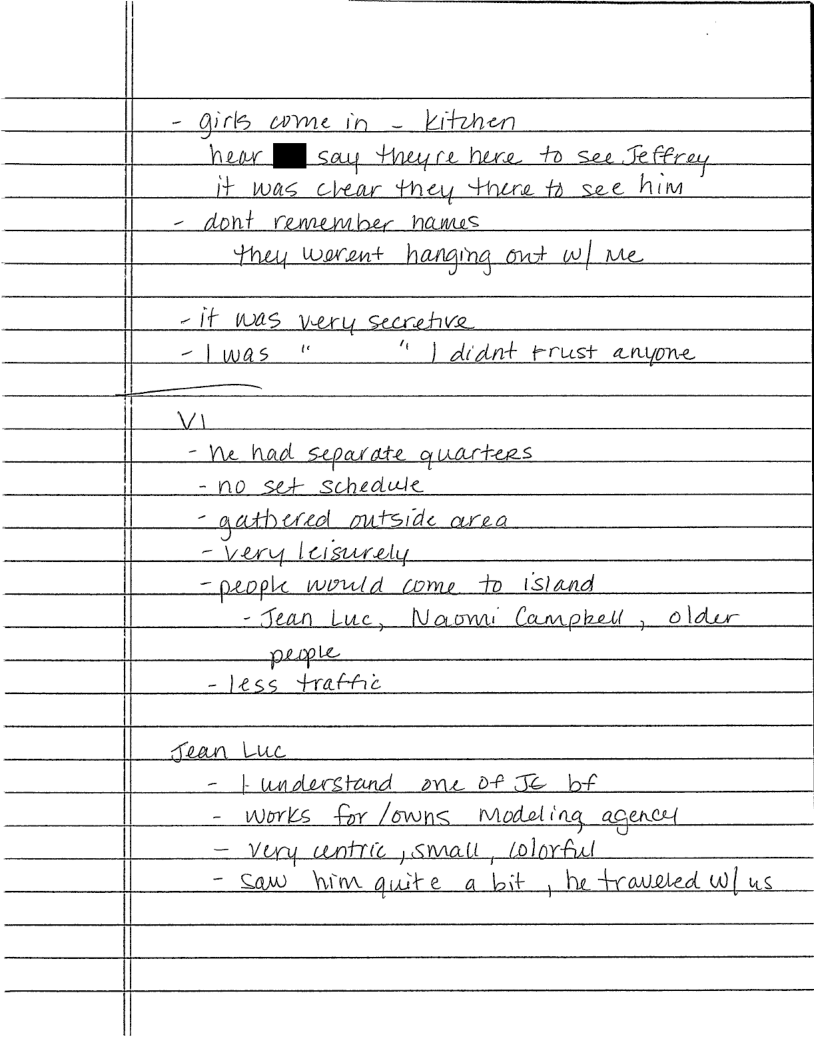 - girls come in - kitchen
hear say theyre here to see Jeffrey
it was clear they there to see him
- dont remember names
they werent hanging out w/ me
- it was very secretive
- I was " " I didnt trust anyone
VI
- he had separate quarters
- no set schedule
- gathered outside area
- very leisurely
- people would come to island
- Jean Luc, Naomi Campbell, older
people
- less traffic
Jean Luc
- I understand one of JE bf
- works for/owns modeling agency
- very centric, small, colorful
- saw him quite a bit, he traveled w/ us